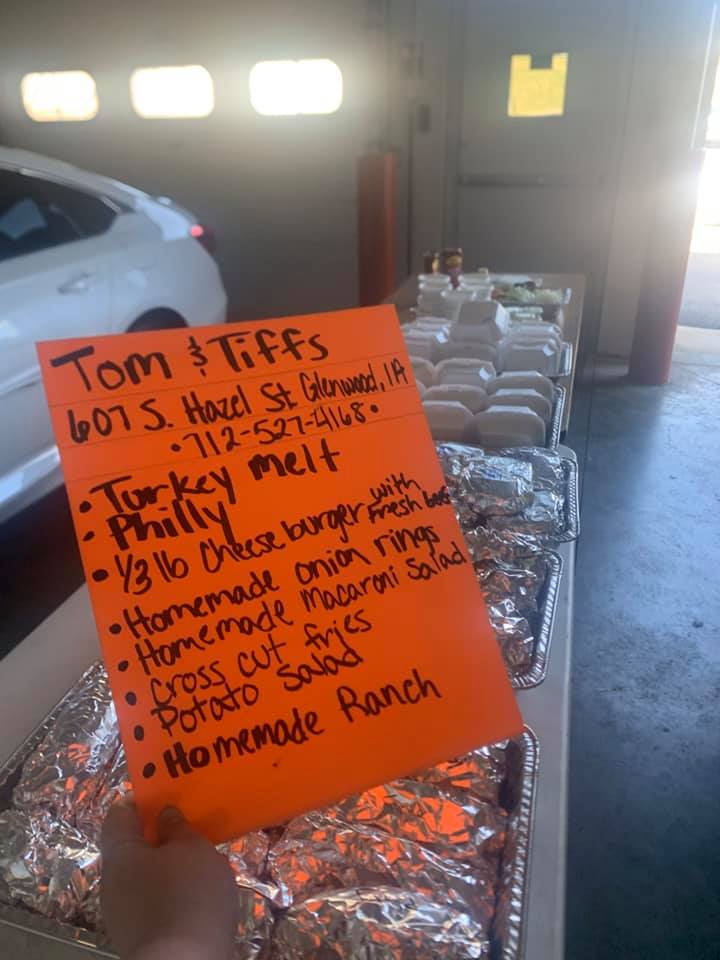 Tom & Tiffs
607 S. Hazel St. Glenwood, IA
• 712-527-4168 •
• Turkey melt
• Philly
• 1/3 lb Cheeseburger with fresh beef
• Homemade onion rings
• Homemade Macaroni Salad
• Cross cut fries
• Potato Salad
• Homemade Ranch